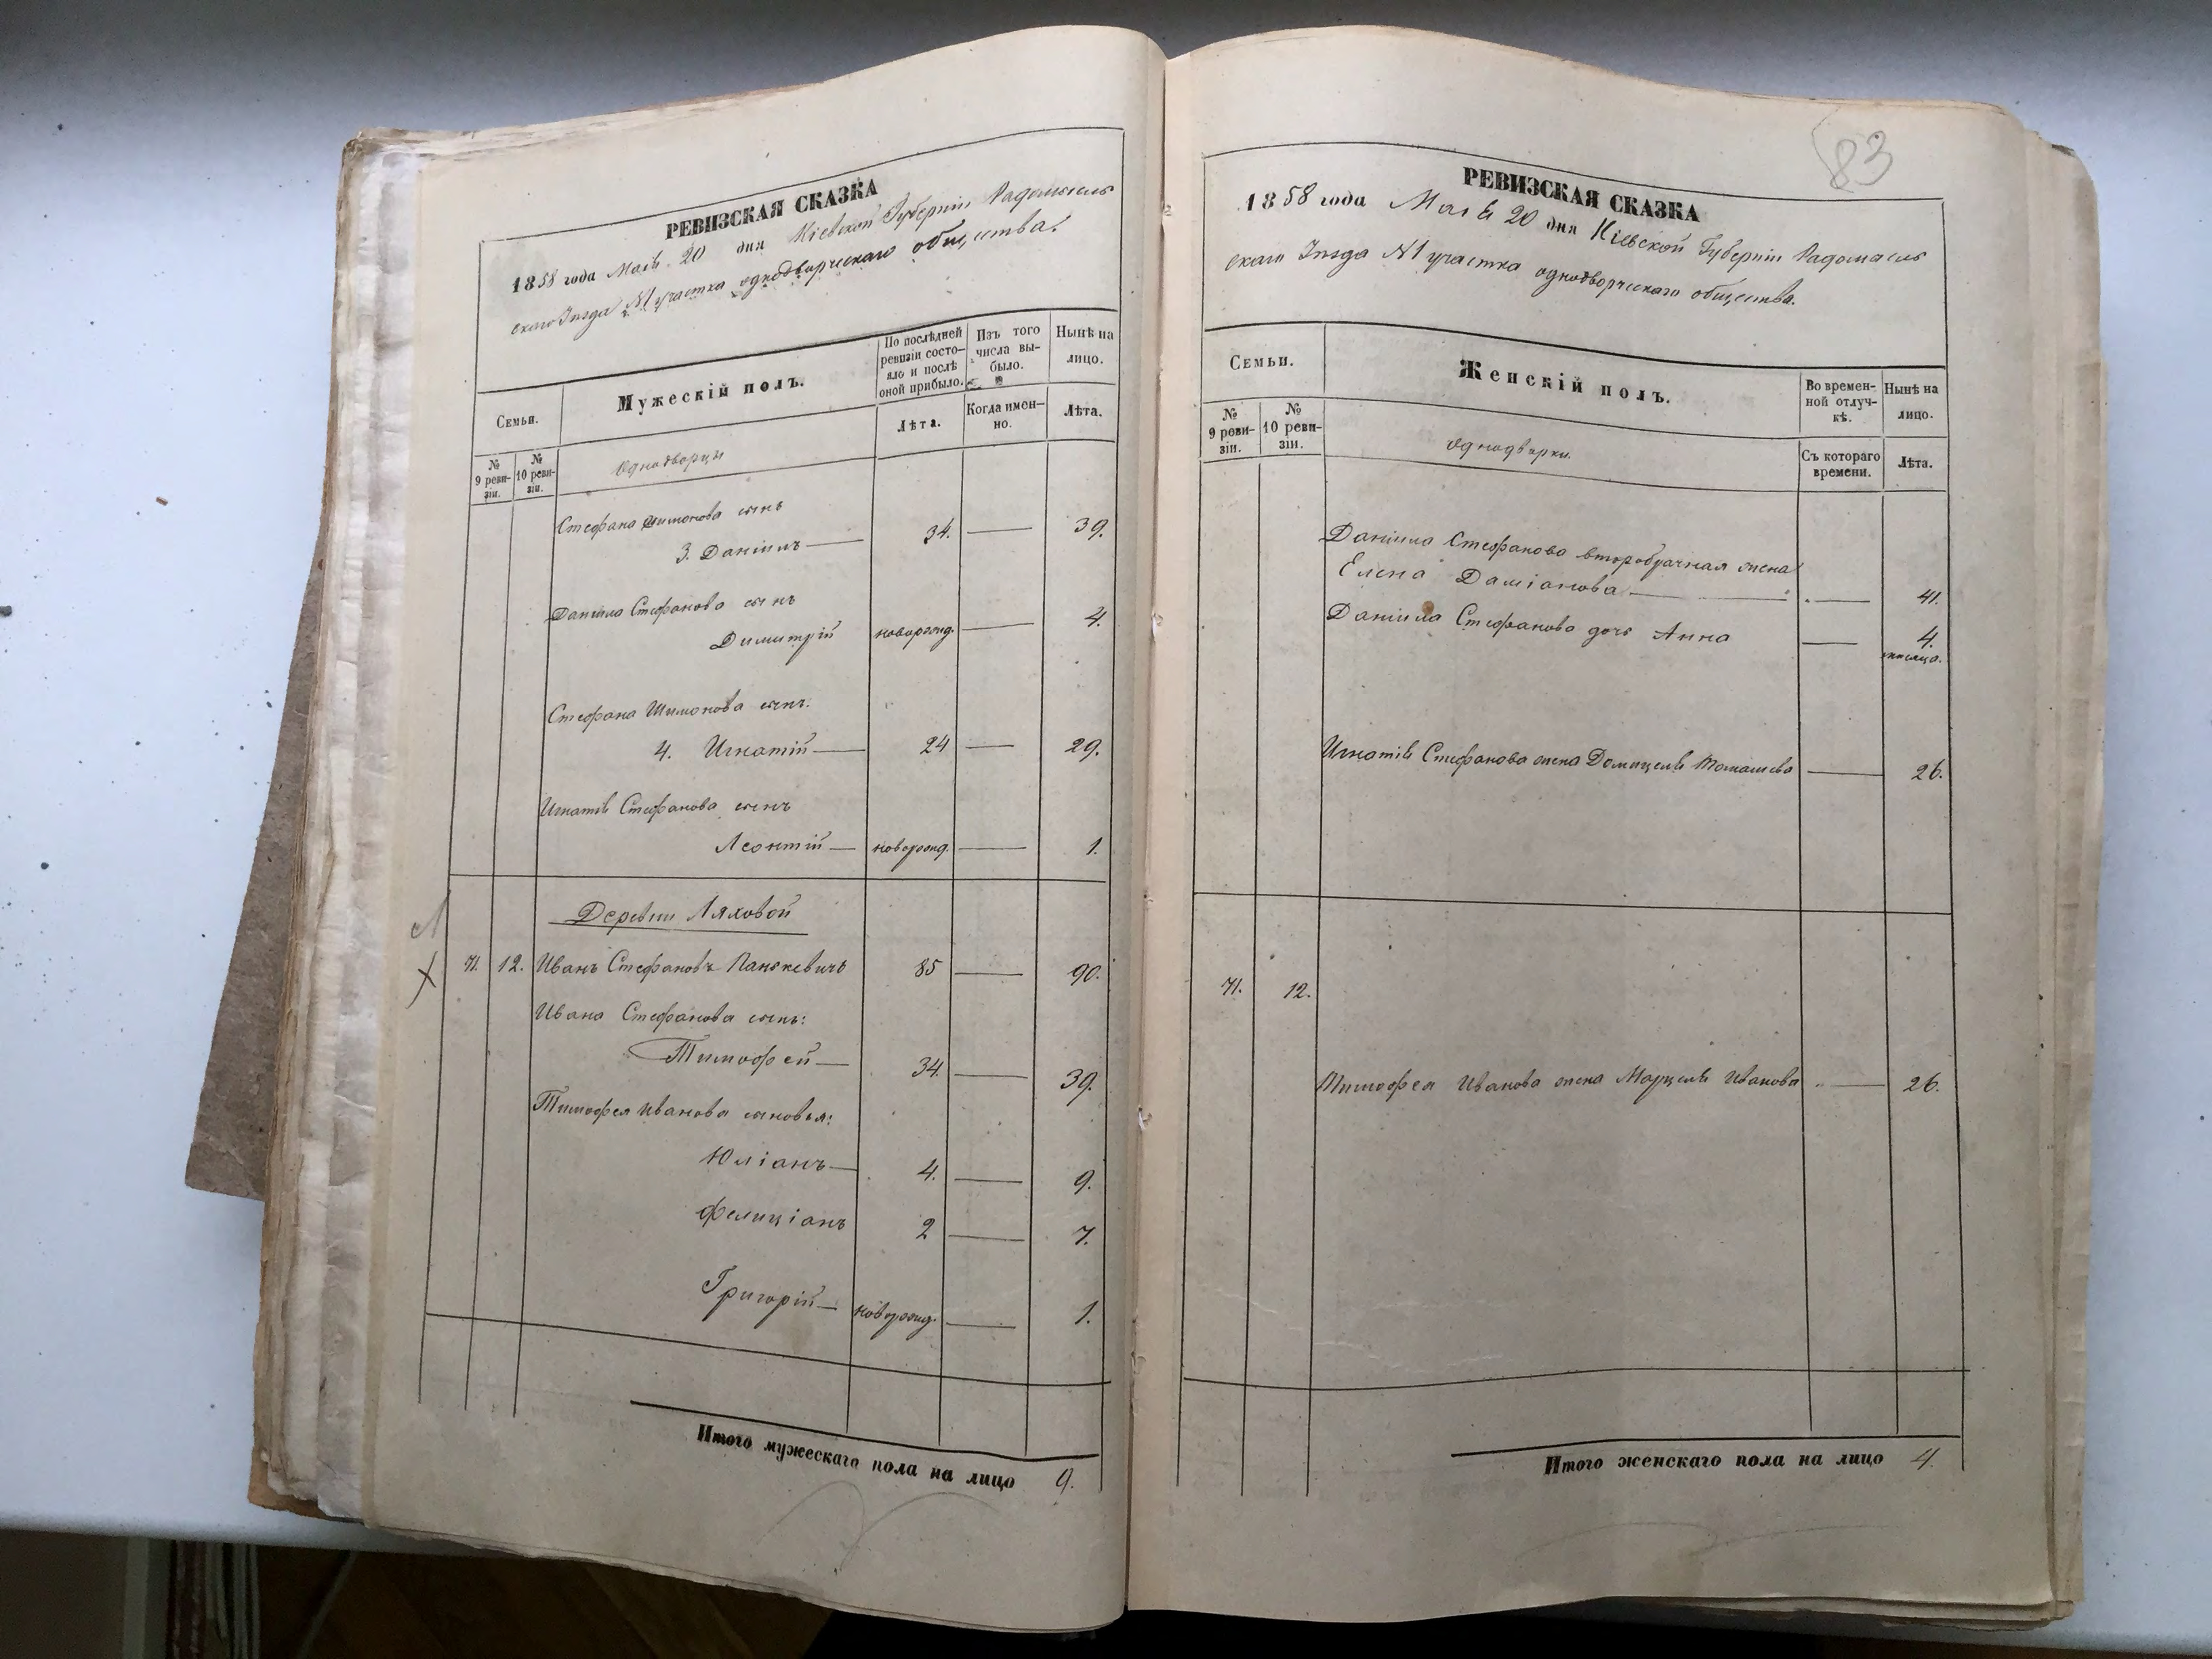 РЕВИЗСКАЯ СКАЗКА
1858 года Маія 20 дня Кіевской Губерніи Радомысль
скаго Уѣзда №1 участка однодворческаго общества.
Семьи.
Мужескій полъ.
По послѣдней ревизіи состо-
яло и послѣ
оной прибыло.
Изъ того
числа вы-
было.
Нынѣ на
лицо.
№
9 реви-
зіи.
№
10 реви-
зіи.
Однодворцы
Лѣта.
Когда имен-
но.
Лѣта.
Стефана Шимонова сынъ
3. Даніилъ — 34. — 39.
Даніила Стефанова сынъ
Димитрій новорожд. — 4.
Стефана Шимонова сынъ.
4. Игнатій — 24 — 29.
Игнатія Стефанова сынъ
Леонтій — новорожд. — 1.
Деревни Ляховой
71. 12. Иванъ Стефановъ Панькевичъ 85 — 90.
Ивана Стефанова сынъ:
Тимофей — 34. — 39.
Тимофея Иванова сыновья:
Юліанъ — 4. — 9.
Фелиціанъ 2 — 7.
Григорій — новорожд. — 1.
Итого мужескаго пола на лицо 9.
83
РЕВИЗСКАЯ СКАЗКА
1858 года Маія 20 дня Кіевской Губерніи Радомысль
скаго Уѣзда №1 участка однодворческаго общества.
Семьи.
Женскій полъ.
Во времен-
ной отлуч-
кѣ.
Нынѣ на
лицо.
№
9 реви-
зіи.
№
10 реви-
зіи.
Однодворки.
Съ котораго
времени.
Лѣта.
Даніила Стефанова второбрачная жена
Елена Даміанова — — 41.
Даніила Стефанова дочь Анна — 4.
мѣсяца.
Игнатія Стефанова жена Домицеля Томашева — 26.
71. 12.
Тимофея Иванова жена Марцеля Иванова — 26.
Итого женскаго пола на лицо 4.